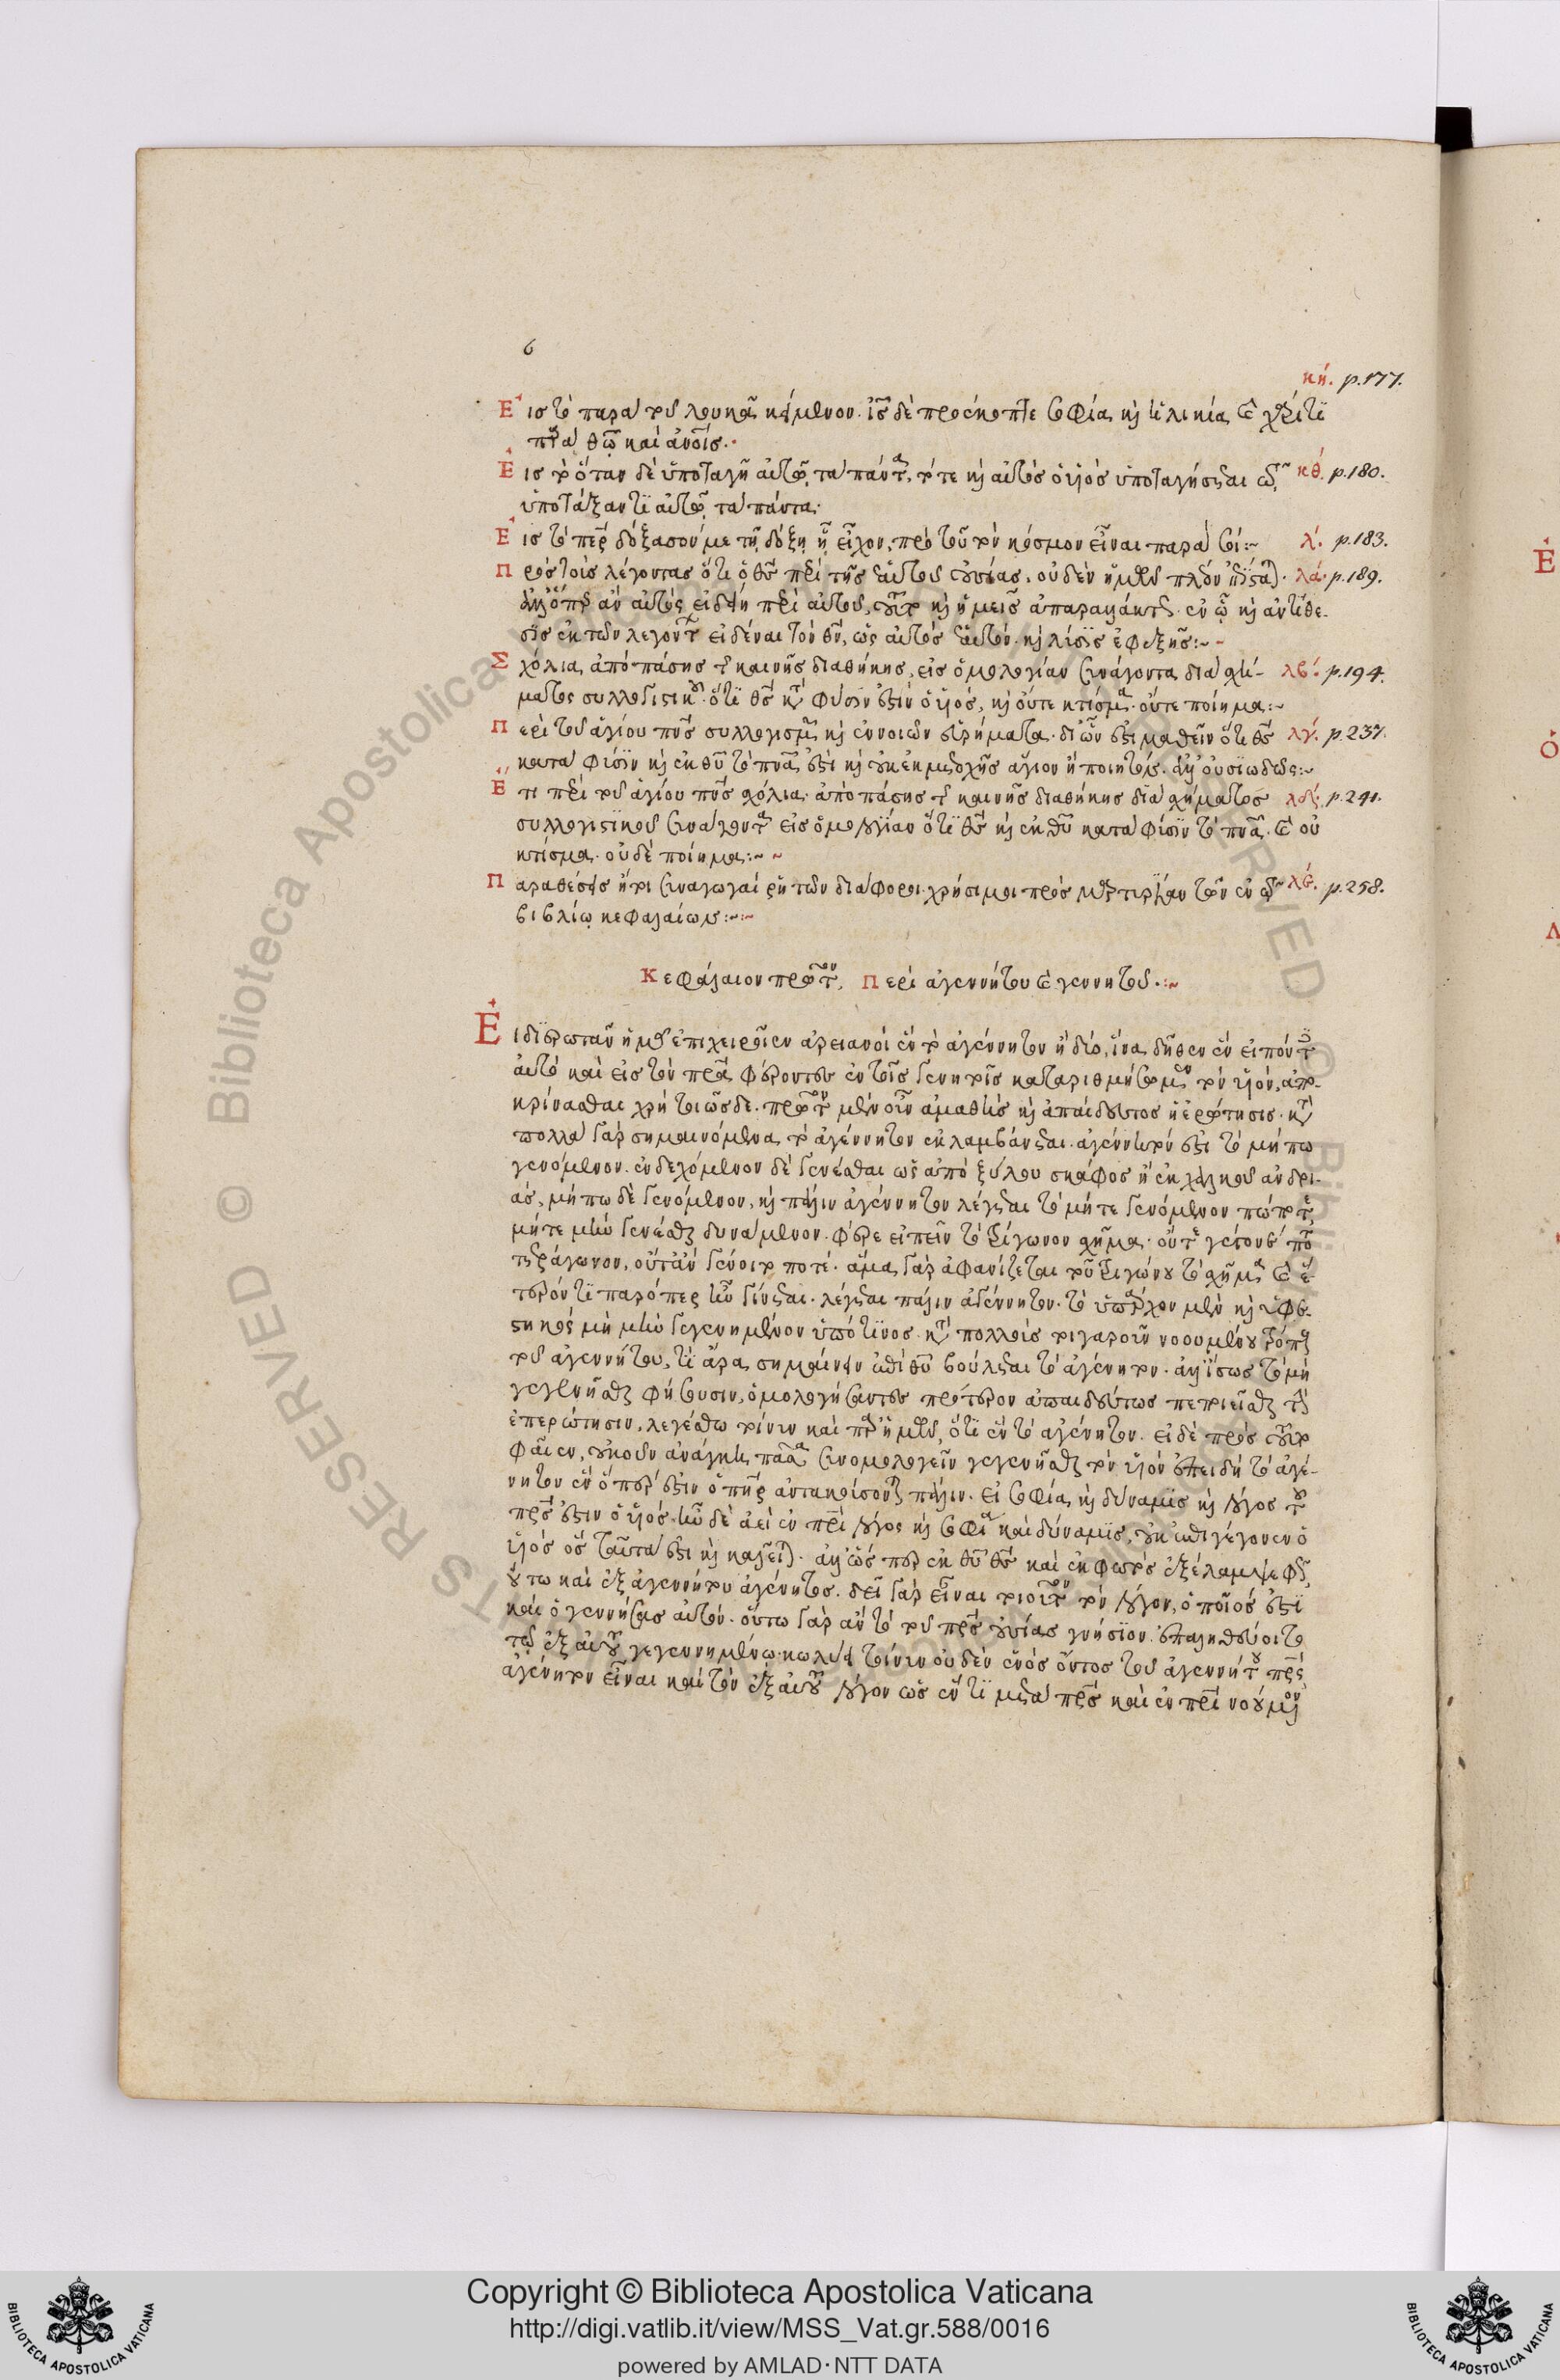 6
κή. p.177.
Εἰς τὸ παρὰ τοῦ λουκᾶ κείμενον. ἰς δὲ προέκοπτε σοφία καὶ ἡλικία καὶ χάριτι
παρὰ θω καὶ ἀνοις.
Εἰς τὸ ὅταν δὲ ὑποταγῇ αὐτῷ τὰ πάντα, τότε καὶ αὐτὸς ὁ υἱὸς ὑποταγήσεται τῷ κθ. p.180.
ὑποτάξαντι αὐτῷ τὰ πάντα.
Εἰς τὸ περ δόξασόν με τῇ δόξῃ ᾗ εἶχον, πρὸ τοῦ τὸν κόσμον εἶναι παρὰ σοί:~ λ. p.183.
Πρὸς τοὺς λέγοντας ὅτι ὁ θς περὶ τῆς ἑαυτοῦ οὐσίας, οὐδὲν ἡμῶν πλέον ἐπίσταται. λά. p.189.
ἀλλ' ὅπερ ἂν αὐτὸς εἰδείη περὶ αὐτοῦ, τοῦτο καὶ ἡμεῖς ἀπαραλλάκτως. ἐν ᾧ καὶ ἀντίθε-
σις ἐκ τῶν λεγόντων εἰδέναι τὸν θν, ὡς αὐτὸς ἑαυτόν. καὶ λύσις ἐφεξῆς:~
Σχόλια ἀπὸ πάσης τῆς καινῆς διαθήκης, εἰς ὁμολογίαν συνάγοντα διὰ σχή- λβ. p.194.
ματος συλλογιστικοῦ. ὅτι θς κατὰ φύσιν ἐστὶν ὁ υἱός, καὶ οὔτε κτίσμα. οὔτε ποίημα:~
Περὶ τοῦ ἁγίου πνς συλλογισμοὶ καὶ ἐννοιῶν εὑρήματα. δι' ὧν ἔστι μαθεῖν ὅτι θς λγ. p.237.
κατὰ φύσιν καὶ ἐκ θυ τὸ πνα ἐστὶ καὶ οὐκ ἐκ μετοχῆς ἅγιον ἢ ποιητῶς. ἀλλ' οὐσιωδῶς:~
Ἔτι περὶ τοῦ ἁγίου πνς σχόλια. ἀπὸ πάσης τῆς καινῆς διαθήκης διὰ σχήματος λδ. p.241.
συλλογιστικοῦ συνάγοντα εἰς ὁμολογίαν ὅτι θς καὶ ἐκ θυ κατὰ φύσιν τὸ πνα. καὶ οὐ
κτίσμα. οὐδὲ ποίημα:~
Παραθέσεις ἤτοι συναγωγαὶ ῥητῶν διάφοροι χρήσιμοι πρὸς μαρτυρίαν τῶν ἐν τῷ λε. p.258.
βιβλίῳ κεφαλαίων:~
Κεφάλαιον πρῶτον, Περὶ ἀγεννήτου καὶ γεννητοῦ.:~
Εἰ διερωτᾶν ἡμᾶς ἐπιχειροῖεν ἀρειανοὶ ἓν τὸ ἀγέννητον ἢ δύο, ἵνα δῆθεν ἓν εἰπόντων
αὐτὸ καὶ εἰς τὸν πρα φέροντες ἐν τοῖς γενητοῖς καταριθμήσωμεν τὸν υἱόν, ἀπο-
κρίνασθαι χρὴ τοιῶσδε. πρῶτον μὲν οὖν ἀμαθὴς καὶ ἀπαίδευτος ἡ ἐρώτησις. κατὰ
πολλὰ γὰρ σημαινόμενα τὸ ἀγέννητον ἐκλαμβάνεται. ἀγέννητόν ἐστι τὸ μήπω
γενόμενον. ἐνδεχόμενον δὲ γενέσθαι ὡς ἀπὸ ξύλου σκάφος ἢ ἐκ χαλκοῦ ἀνδρι-
άς, μήπω δὲ γενόμενον, καὶ πάλιν ἀγέννητον λέγεται τὸ μήτε γενόμενον πώποτε
μήτε μὴν γενέσθαι δυνάμενον. φέρε εἰπεῖν τὸ τρίγωνον σχῆμα. οὔτε γέγονέ ποτε
τετράγωνον, οὔτ' ἂν γένοιτό ποτε. ἅμα γὰρ ἀφανίζεται τοῦ τριγώνου τὸ σχῆμα καὶ ἕ-
τερόν τι παρ' ὅπερ ἦν γίνεται. λέγεται πάλιν ἀγέννητον. τὸ ὑπάρχον μὲν καὶ ὑφε-
στηκὸς μὴ μὴν γεγεννημένον ὑπό τινος. κατὰ πολλοὺς τοιγαροῦν νοουμένου τρόπους
τοῦ ἀγεννήτου, τί ἄρα σημαίνειν ἐπὶ θυ βούλεται τὸ ἀγέννητον. ἀλλ' ἴσως τὸ μὴ
γεγενῆσθαι φήσουσιν, ὁμολογήσαντες πρότερον ἀπαιδεύτως πεποιεῖσθαι τὴν
ἐπερώτησιν, λεγέσθω τοίνυν καὶ παρ' ἡμῶν, ὅτι ἓν τὸ ἀγένητον. εἰ δὲ πρὸς τοῦτο
φαῖεν, οὐκοῦν ἀνάγκη πᾶσα συνομολογεῖν γεγενῆσθαι τὸν υἱὸν ἐπειδὴ τὸ ἀγέ-
νητον ἓν ὅπερ ἐστὶν ὁ πηρ ἀντακούσονται πάλιν. εἰ σοφία καὶ δύναμις καὶ λόγος τοῦ
πρς ἐστιν ὁ υἱός. ἦν δὲ ἀεὶ ἐν πρι λόγος καὶ σοφία καὶ δύναμις, οὐκ ἐπιγέγονεν ὁ
υἱὸς ὃς ταῦτά ἐστι καὶ καλεῖται. ἀλλ' ὥσπερ ἐκ θυ θς καὶ ἐκ φωτὸς ἐξέλαμψε φῶς,
οὕτω καὶ ἐξ ἀγεννήτου ἀγένητος. δεῖ γὰρ εἶναι τοιοῦτον τὸν λόγον, ὁποῖός ἐστι
καὶ ὁ γεννήσας αὐτόν. οὕτω γὰρ ἂν τὸ τοῦ πρς οὐσίας γνήσιον. ἐπαληθεύοιτο
τῷ ἐξ αὐτοῦ γεγεννημένῳ. κωλύει τοίνυν οὐδὲν ἑνὸς ὄντος τοῦ ἀγεννήτου πρς
ἀγένητον εἶναι καὶ τὸν ἐξ αὐτοῦ λόγον ὡς ἕν τι μετὰ πρς καὶ ἐν πρι νοούμενον
Copyright © Biblioteca Apostolica Vaticana
http://digi.vatlib.it/view/MSS_Vat.gr.588/0016
powered by AMLAD·NTT DATA